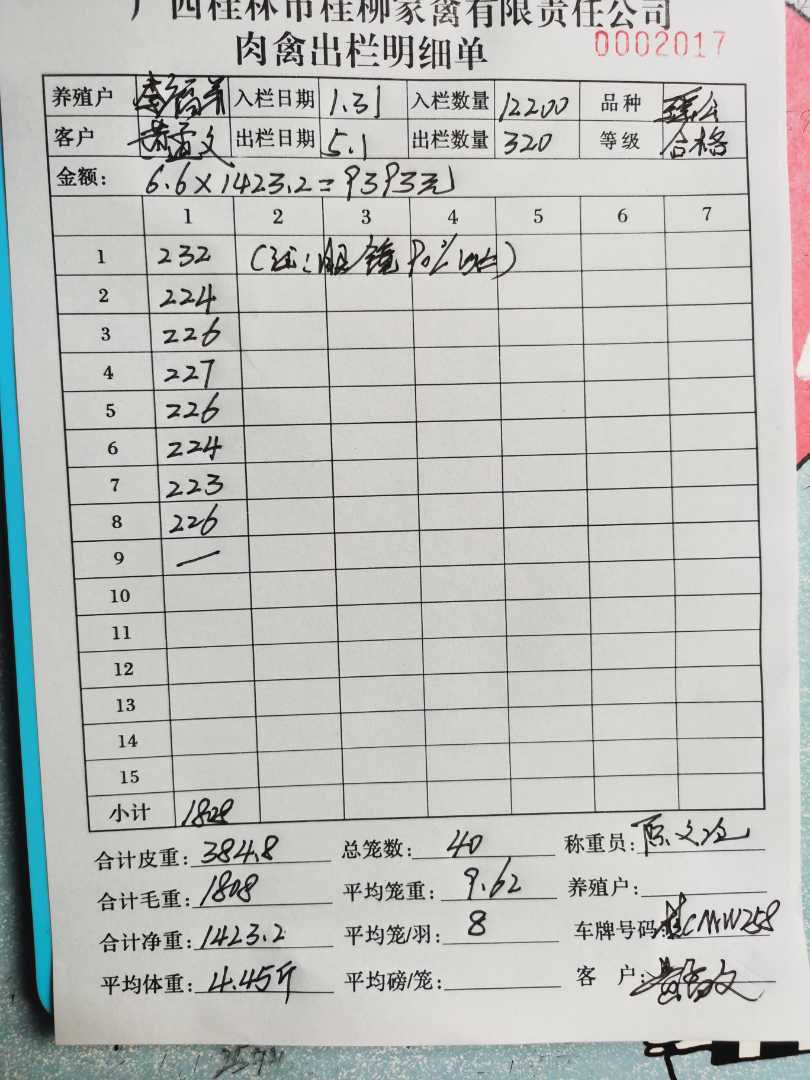 广西桂林市桂柳家禽有限责任公司
肉禽出栏明细单 0002017
养殖户 入栏日期 1.31 入栏数量 12200 品种
客户 出栏日期 5.1 出栏数量 320 等级 合格
金额: 6.6×1423.2=9393元
1 2 3 4 5 6 7
1 232 (注:眼镜90%以上)
2 224
3 226
4 227
5 226
6 224
7 223
8 226
9 —
10
11
12
13
14
15
小计 1808
合计皮重: 384.8 总笼数: 40 称重员:
合计毛重: 1808 平均笼重: 9.62 养殖户:
合计净重: 1423.2 平均笼/羽: 8 车牌号码:
平均体重: 4.45斤 平均磅/笼: 客 户: